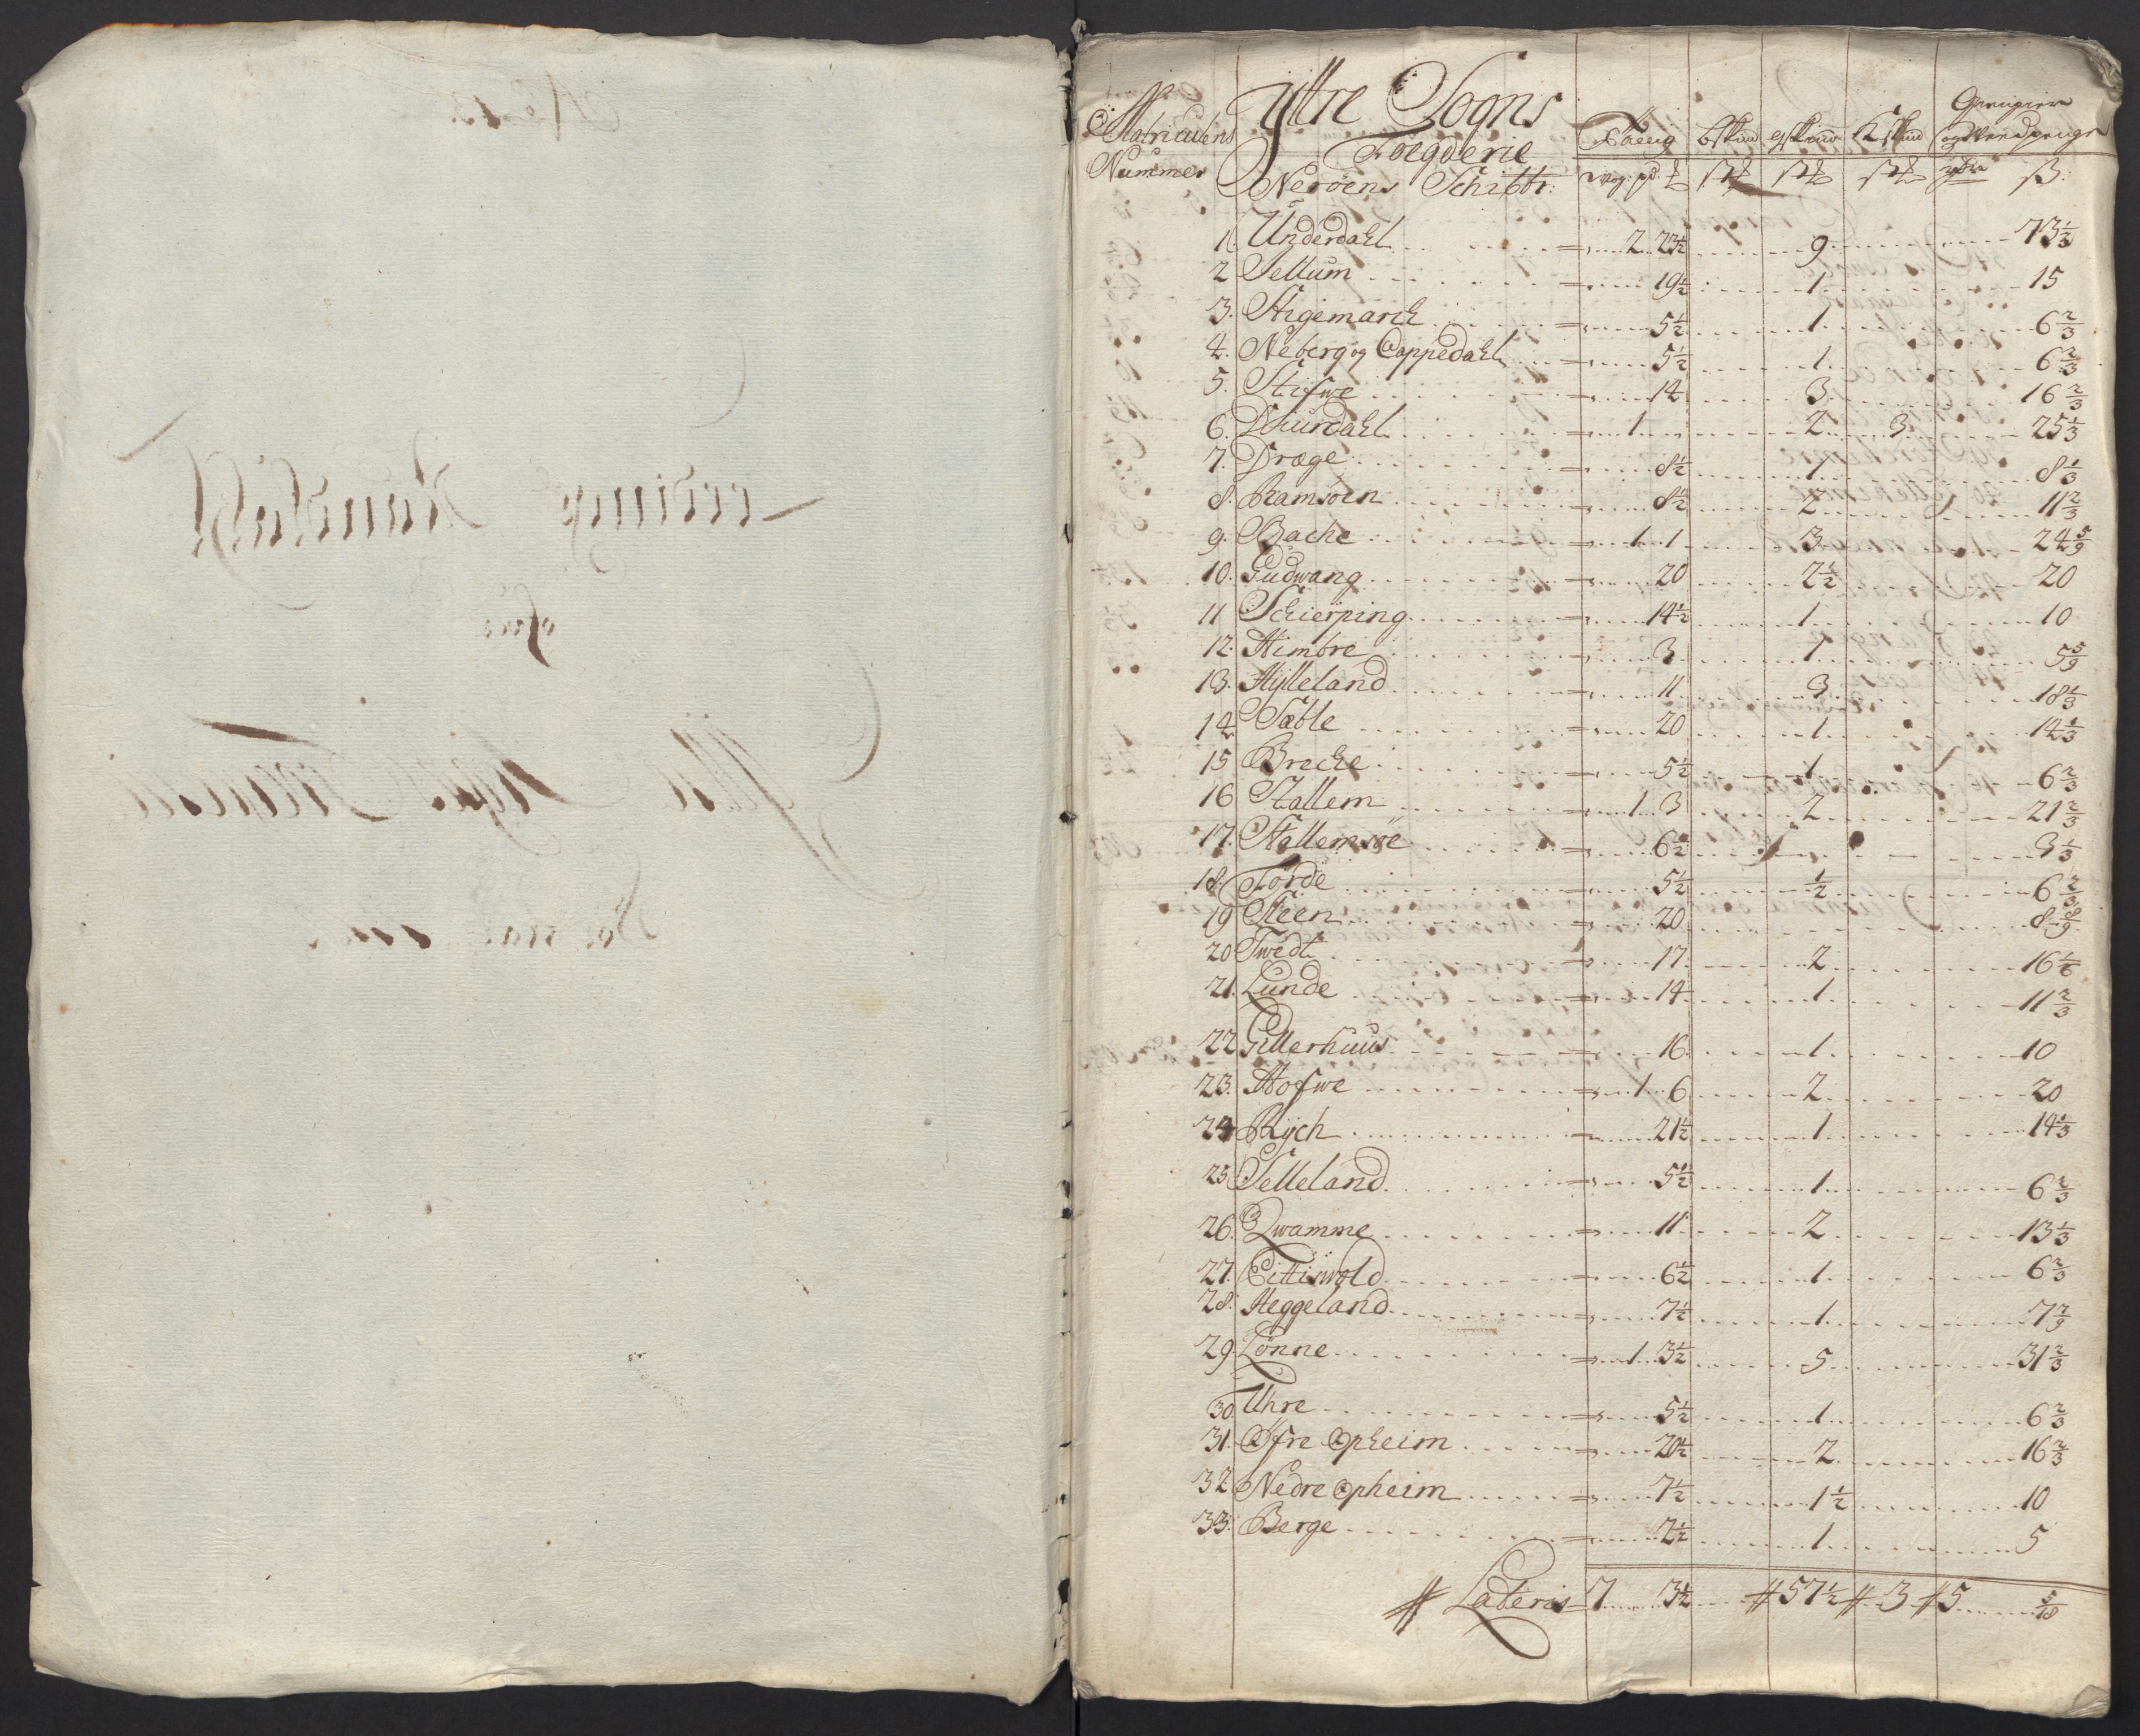 No 13.
Leedings Mandtal
ofver
Yttre Sogns Foegderie
Matriculens Nummer
Yttre Sogns Foegderie
Nerøens Schibbr:
Faarig bskind gskind Kskind
Wog: pd:
1. Underdahl 2 23½ 9 73⅓
2 Sellum 19½ 1 15
3. Stigemarch 5½ 1 6⅔
4. Neberg og Cappedahl 5½ 1 6⅔
5. Stifwe 14 3 16⅔
6. Diurdahl 1 2 3 25⅓
7. Dræge 8½ 1 8⅓
8. Ramsøen 8½ 2 11⅔
9. Bache 1 1 3 24 5/9
10. Gudwang 20 2½ 20
11 Schierping 14½ 1 10
12. Himbre 3 1 5 5/9
13. Hylleland 11 3 18⅓
14 Sæble 20 1 14⅓
15 Breche 5½ 1 6⅔
16 Stallem 1 3 2 21⅔
17. Stallemsøe 6½ 3⅓
18. Førde 5½ ½ 6⅔
19 Steen 20 8 8/9
20 Twedt 17 2 16⅙
21. Lunde 14 1 11⅔
22 Gillerhuus 16 1 10
23. Hofwe 1 6 2 20
24 Rÿch 21½ 1 14⅓
25 Selleland 5½ 1 6⅔
26. Qwamme 11 2 13⅓
27. Eittiswold 6½ 1 6⅔
28. Heggeland 7½ 1 7 7/9
29. Lønne 1 3½ 5 31⅔
30 Uhre 5½ 1 6⅔
31. Øfre Opheim 20½ 2 16⅔
32 Nedre Opheim 7½ 1½ 10
33. Berge 2½ 1 5
# Lateris 17 3½ # 57½ # 3 # 5 5/18